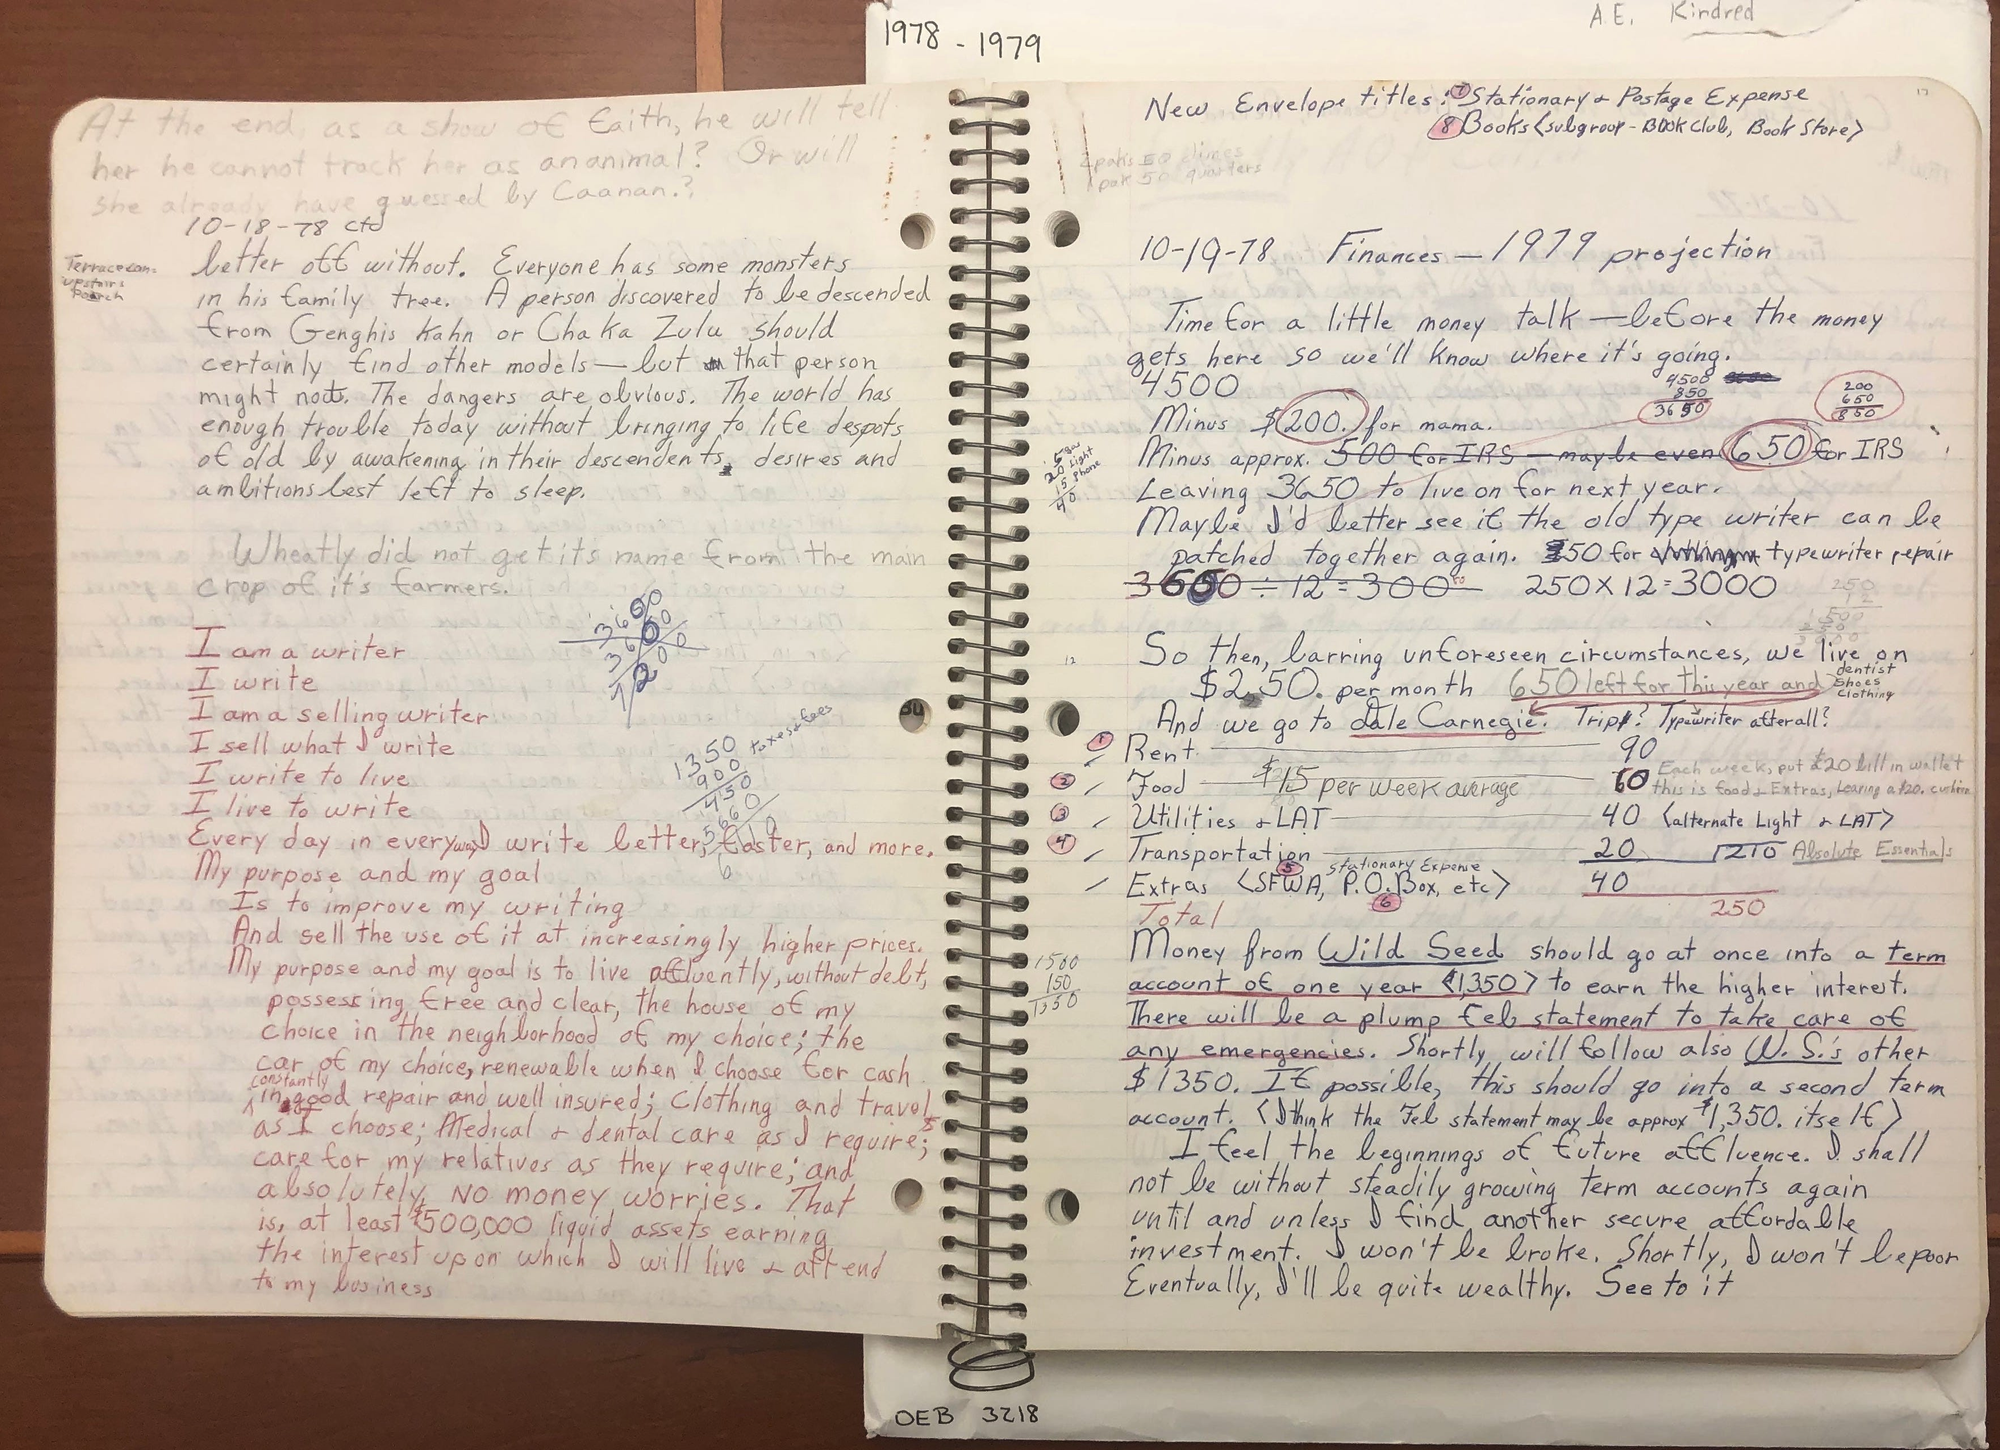 1978 - 1979
A.E. Kindred
At the end, as a show of faith, he will tell
her he cannot track her as an animal? Or will
she already have guessed by Caanan.?
10-18-78 ctd
Terrace con.
upstairs
Porch
better off without. Everyone has some monsters
in his family tree. A person discovered to be descended
from Genghis Kahn or Chaka Zulu should
certainly find other models — but that person
might not. The dangers are obvious. The world has
enough trouble today without bringing to life despots
of old by awakening in their descendents, desires and
ambitions best left to sleep.
Wheatly did not get its name from the main
crop of it's farmers.
3600
3600
7200
I am a writer
I write
I am a selling writer
I sell what I write
I write to live
I live to write
1350 taxes & fees
900
450
Every day in every way I write better, faster, and more.
My purpose and my goal
Is to improve my writing
And sell the use of it at increasingly higher prices.
My purpose and my goal is to live affluently, without debt,
possessing free and clear, the house of my
choice in the neighborhood of my choice; the
car of my choice, renewable when I choose for cash
constantly
in good repair and well insured; clothing and travel
as I choose; Medical & dental care as I require;
care for my relatives as they require; and
absolutely, NO money worries. That
is, at least $500,000 liquid assets earning
the interest upon which I will live & attend
to my business
New Envelope titles: 7 Stationary & Postage Expense
8 Books <subgroup - Book Club, Book Store>
2 paks 50 dimes
1 pak 50 quarters
10-19-78 Finances — 1979 projection
Time for a little money talk — before the money
gets here so we'll know where it's going.
4500
4500
850
3650
200
650
850
Minus $200. for mama.
Minus approx. 500 for IRS — maybe even 650 for IRS
5 gas
20 Light
15 Phone
40
Leaving 3650 to live on for next year.
Maybe I'd better see if the old type writer can be
patched together again. $50 for typewriter repair
3600 ÷ 12 = 300 250 X 12 = 3000
So then, barring unforeseen circumstances, we live on
$250. per month 650 left for this year and dentist
shoes
clothing
And we go to dale Carnegie. Trip? Typewriter after all?
1 Rent 90
2 Food $15 per week average 60 Each week, put $20 bill in wallet
this is food & Extras, leaving a $20. cushion
3 Utilities & LAT 40 <alternate Light & LAT>
4 Transportation 20 210 Absolute Essentials
5 Stationary Expense
Extras <SFWA, P.O. Box, etc> 40
6
Total 250
1500
150
1350
Money from Wild Seed should go at once into a term
account of one year <1,350> to earn the higher interest.
There will be a plump Feb statement to take care of
any emergencies. Shortly, will follow also W. S.'s other
$1350. If possible, this should go into a second term
account. <I think the Feb statement may be approx $1,350. itself>
I feel the beginnings of future affluence. I shall
not be without steadily growing term accounts again
until and unless I find another secure affordable
investment. I won't be broke. Shortly, I won't be poor
Eventually, I'll be quite wealthy. See to it
OEB 3218